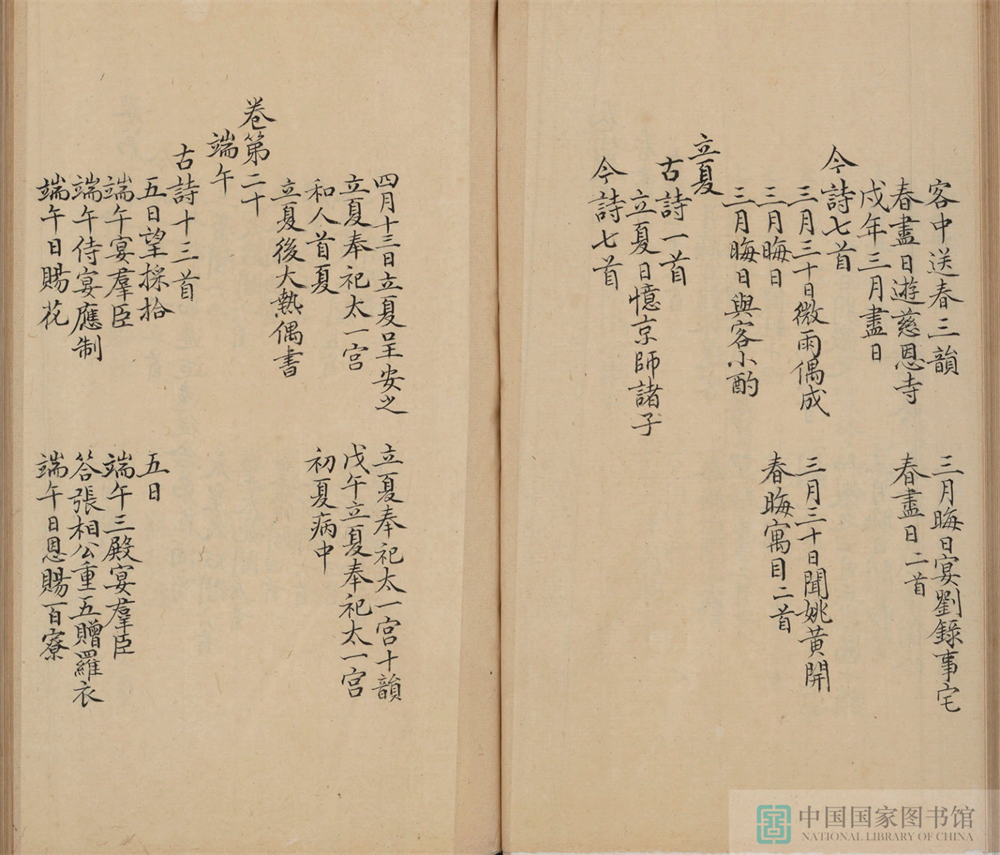 客中送春三韻
三月晦日宴劉錄事宅
春盡日遊慈恩寺
春盡日二首
戊年三月盡日
今詩七首
三月三十日微雨偶成
三月三十日聞姚黃開
三月晦日
春晦寓目二首
三月晦日與客小酌
立夏
古詩一首
立夏日憶京師諸子
今詩七首
四月十三日立夏呈安之
立夏奉祀太一宮十韻
立夏奉祀太一宮
戊午立夏奉祀太一宮
和人首夏
初夏病中
立夏後大熱偶書
卷第二十
端午
古詩十三首
五日望採拾
五日
端午宴羣臣
端午三殿宴羣臣
端午侍宴應制
答張相公重五贈羅衣
端午日賜花
端午日恩賜百寮
中国国家图书馆
NATIONAL LIBRARY OF CHINA